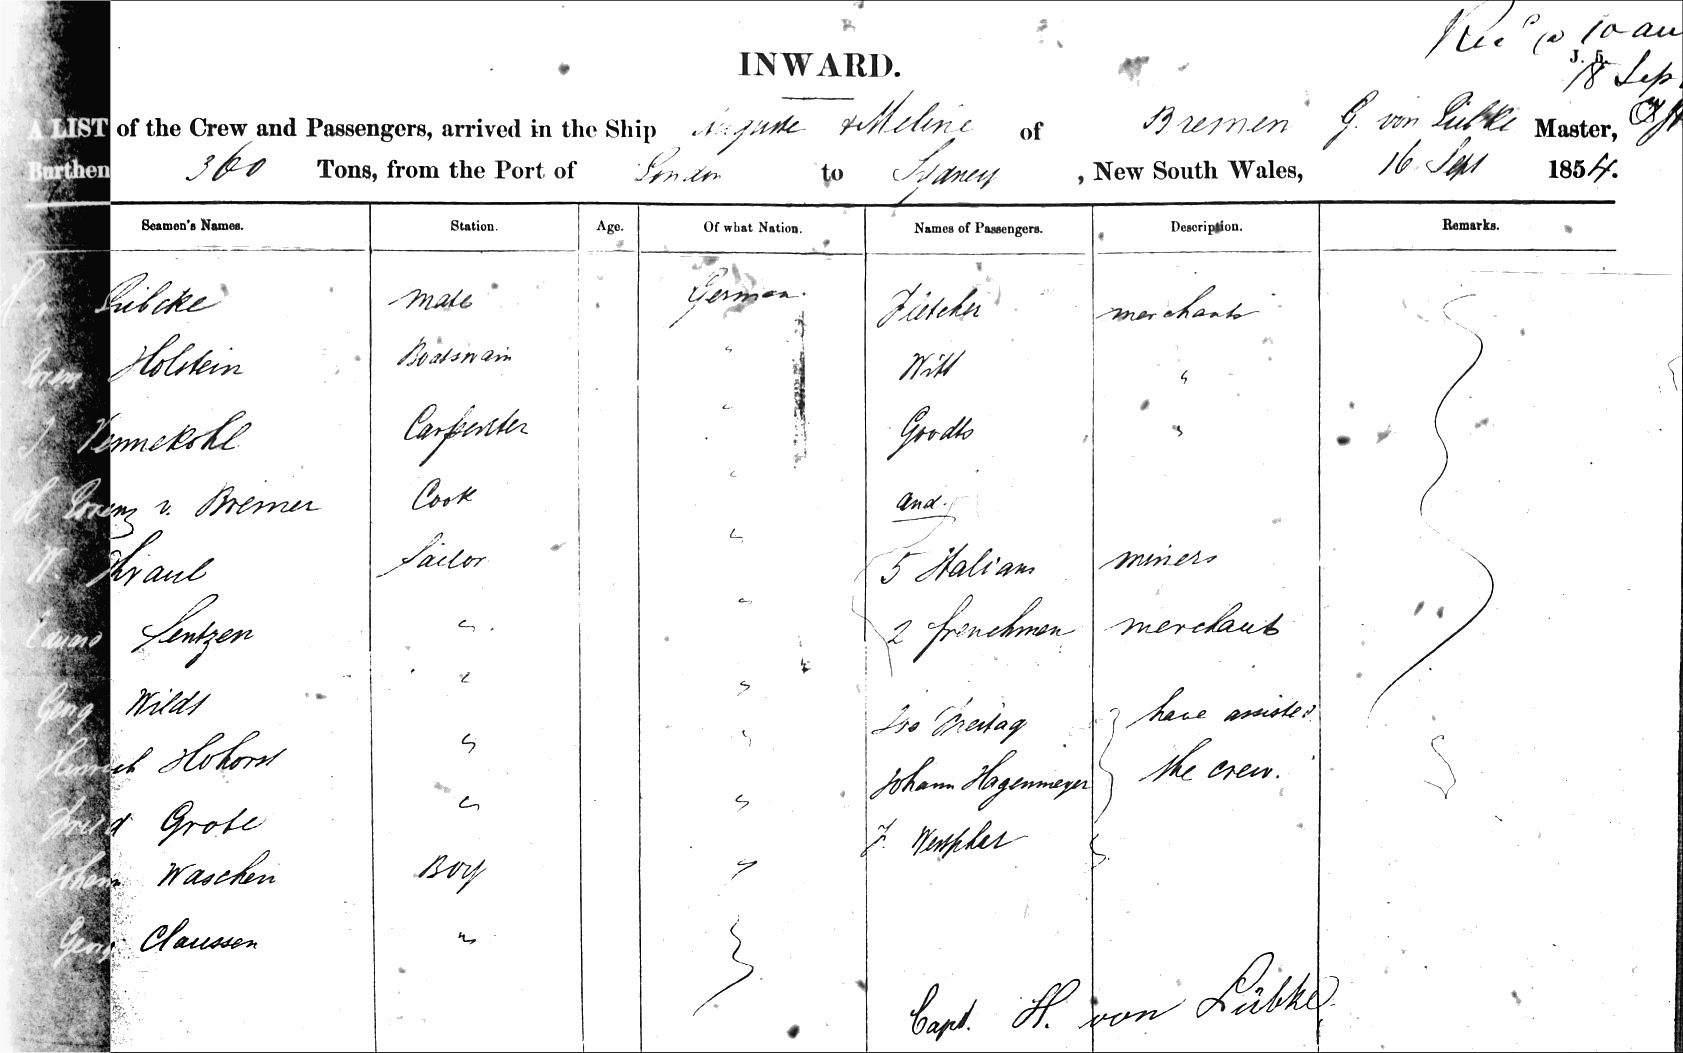 Rec^d @ 10 am
J. 5.
18 Sep
INWARD.
A LIST of the Crew and Passengers, arrived in the Ship Auguste & Meline of Bremen G. von Lübke Master,
Burthen 360 Tons, from the Port of London to Sydney, New South Wales, 16 Sept 1854.
Seamen's Names. Station. Age. Of what Nation. Names of Passengers. Description. Remarks.
Lübcke Mate German. Fletcher merchants
Holstein Boatswain " Witt "
J Vennekohl Carpenter " Goodts "
H Lorenz v. Bremer Cook " and
W. Sailor " 5 Italians miners
Sentzen " " 2 frenchmen merchants
Georg Wildt " " Freitag have assisted
Heinrich Hohorst " " Johann Hagenmeyer the crew.
Grote " " F. Westphal
Johann Waschen Boy "
Georg Claussen "
Capt. H. von Lübke